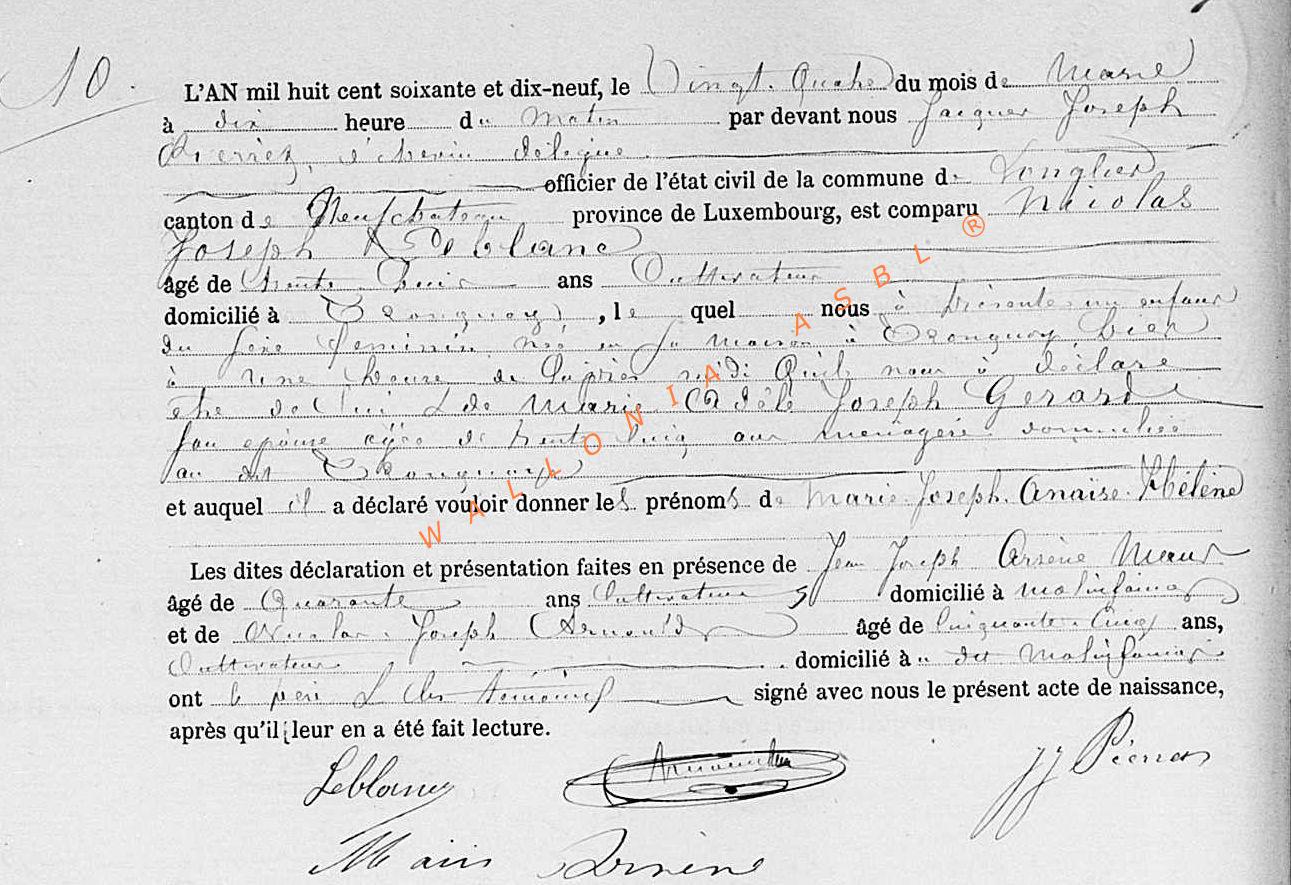 10.
L'AN mil huit cent soixante et dix-neuf, le Vingt. Quatre du mois de Mars
à dix heure du Matin par devant nous Jacques Joseph
échevin délégué
officier de l'état civil de la commune de Longlier
canton de Neufchateau province de Luxembourg, est comparu Nicolas
Joseph Leblanc
âgé de trente ans Cultivateur
domicilié à Tronquoy, le quel nous à présenté un enfant
du sexe feminin né en sa maison à Tronquoy hier
à une heure de l'après midi Qu'il nous à déclaré
etre de lui & de Marie Adèle Joseph Gerard
son epouse agée de trente cinq ans menagère domiciliée
au dit Tronquoy
et auquel il a déclaré vouloir donner les prénoms de Marie. Joseph. Anaïse. Hélène
Les dites déclaration et présentation faites en présence de Jean Joseph Arsène
âgé de Quarante ans Cultivateur domicilié à Molinfaing
et de Nicolas. Joseph Arnould âgé de Cinquante. Cinq ans,
Cultivateur domicilié à dit Molinfaing
ont le père & les témoins signé avec nous le présent acte de naissance,
après qu'il leur en a été fait lecture.
Leblanc JJ
Arsène
WALLONIA ASBL ®